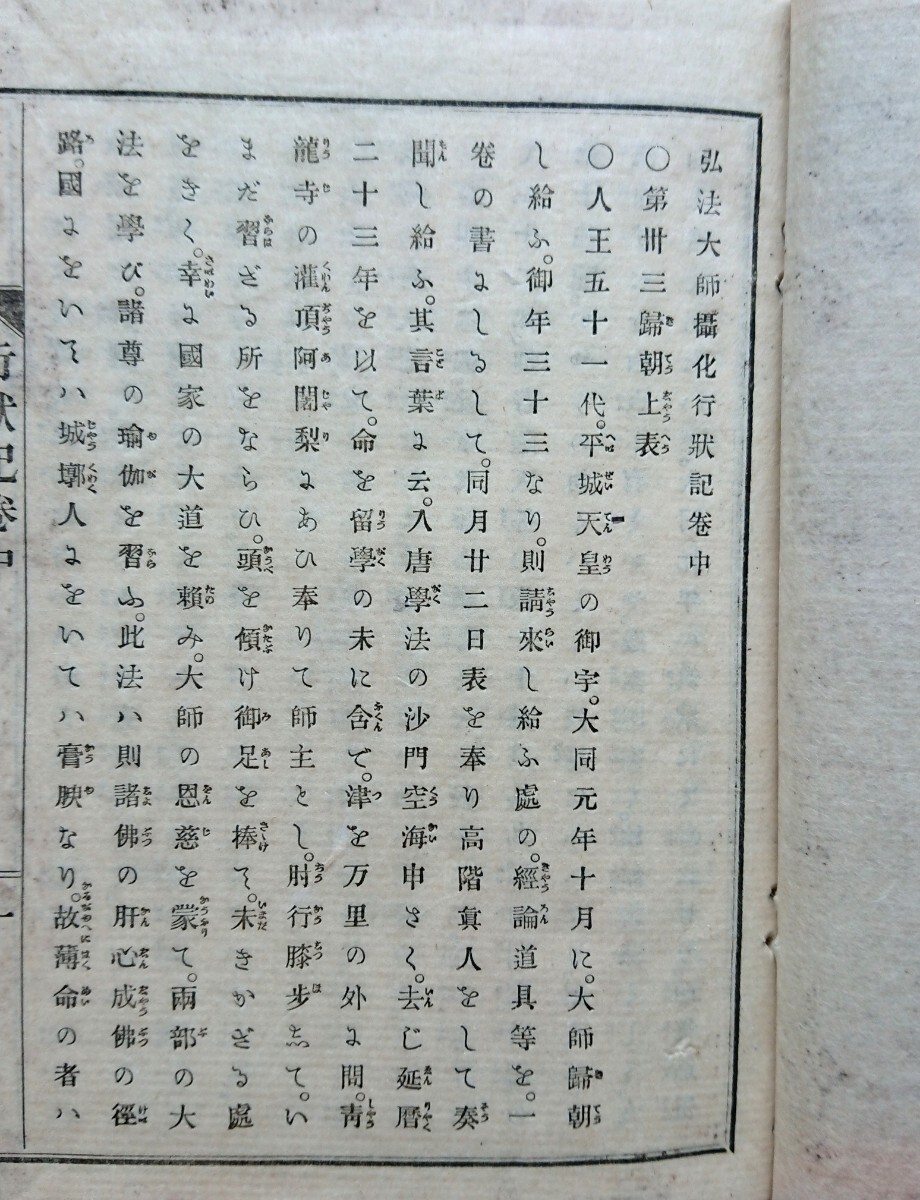 弘法大師攝化行狀記卷中
〇第卅三歸朝上表
〇人王五十一代。平城天皇の御宇。大同元年十月に。大師歸朝
し給ふ。御年三十三なり。則請來し給ふ處の。經論道具等を。一
卷の書にしるして。同月廿二日表を奉り高階眞人をして奏
聞し給ふ。其言葉に云。入唐學法の沙門空海申さく。去じ延曆
二十三年を以て。命を留學の末に含で。津を万里の外に問。靑
龍寺の灌頂阿闍梨にあひ奉りて師主とし。肘行膝步して。い
まだ習ざる所をならひ。頭を傾け御足を捧て。未きかざる處
をきく。幸に國家の大道を賴み。大師の恩慈を蒙て。兩部の大
法を學び。諸尊の瑜伽を習ふ。此法ハ則諸佛の肝心成佛の徑
路。國にをいてハ城墎人にをいてハ膏腴なり。故薄命の者ハ
行狀記卷中
一